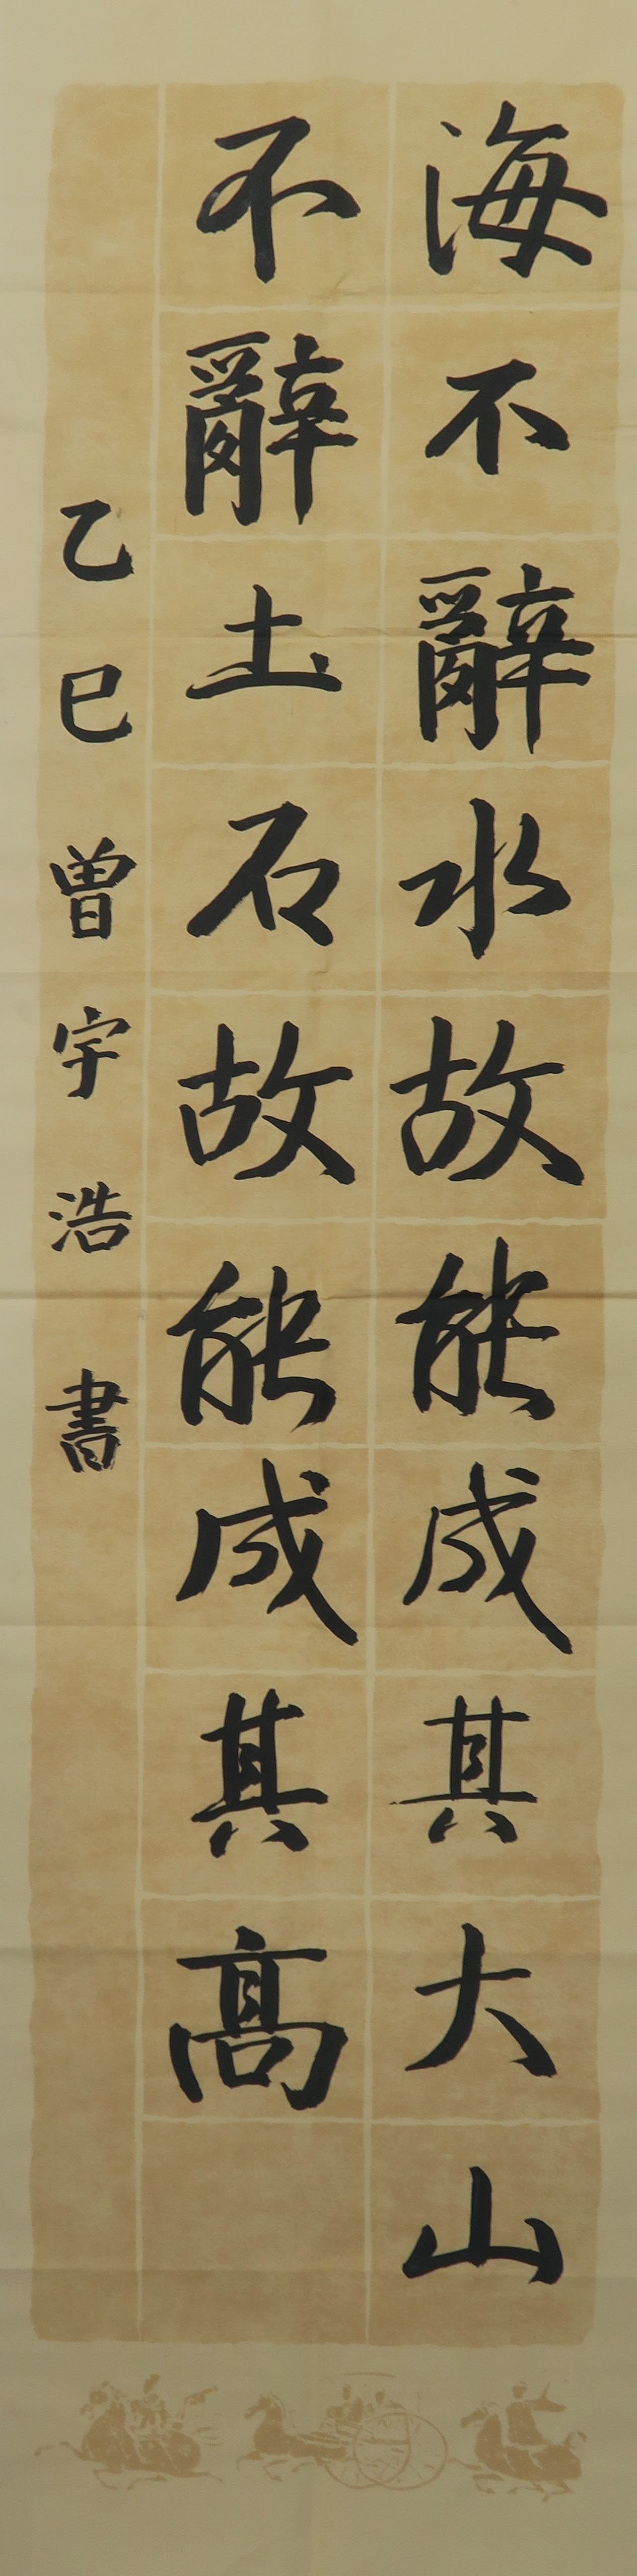 海不辭水故能成其大山
不辭土石故能成其高
乙巳曾宇浩書